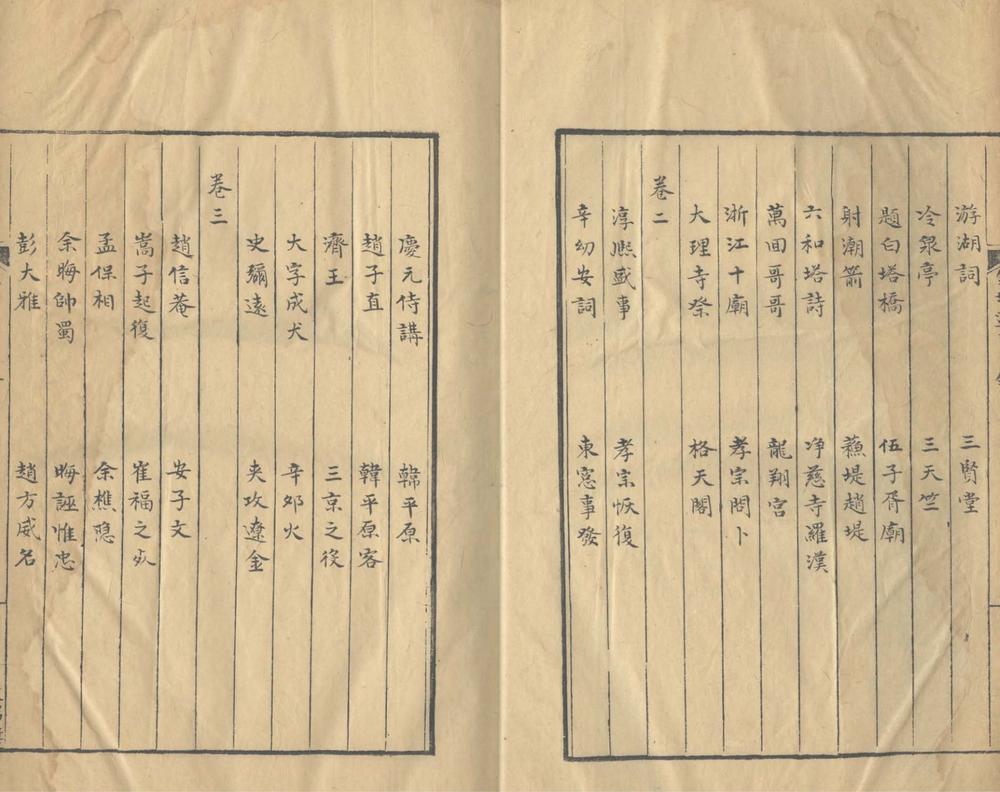 游湖詞　三賢堂
冷泉亭　三天竺
題白塔橋　伍子胥廟
射潮箭　蘓堤趙堤
六和塔詩　净慈寺羅漢
萬回哥哥　龍翔宮
浙江十廟　孝宗問卜
大理寺祭　格天閣
卷二
淳熈盛事　孝宗恢復
辛幼安詞　東窓事發
慶元侍講　韓平原
趙子直　韓平原客
濟王　三京之役
大字成犬　辛夘火
史彌遠　夾攻遼金
卷三
趙信菴　安子文
嵩子起復　崔福之死
孟保相　余樵隠
余晦帥蜀　晦誣惟忠
彭大雅　趙方威名